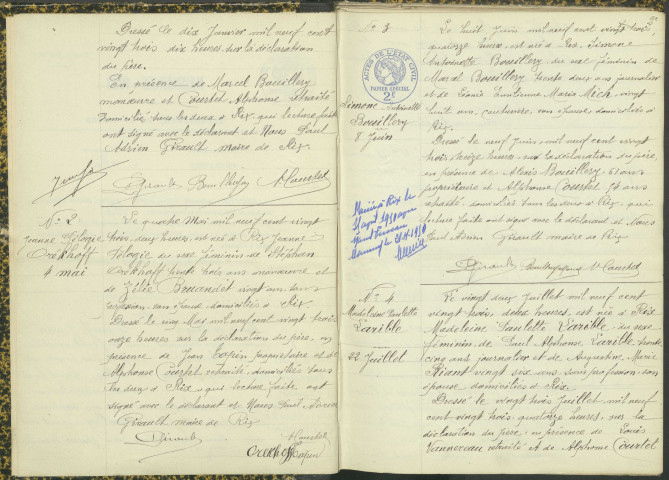 Dressé le dix Janvier mil neuf cent
vingt trois dix heures sur la déclaration
du père.
En présence de Marcel Bouillery
manœuvre et Courtet Alphonse retraité
Domiciliés tous les deux à Rix, qui lecture faite
ont signé avec le déclarant et Nous Paul
Adrien Girault maire de Rix.
Girault
A Courtet
N° 2
Jeanne Elogie
Orckhoff
4 mai
Le quatre Mai mil neuf cent vingt
trois, deux heures est née à Rix Jeanne
Elogie du sexe féminin de Stéphan
Orckhoff trente trois ans manœuvre et
de Zélie Bruandet vingt un ans
profession, son épouse domiciliés à Rix
Dressé le cinq Mai mil neuf cent vingt trois
onze heures sur la déclaration du père, en
présence de Jean propriétaire et de
Alphonse Courtet retraité, domiciliés tous
les deux à Rix, qui lecture faite ont
signé avec le déclarant et Nous Paul Adrien
Girault maire de Rix
Girault
A Courtet
Orckhoff
N° 3
ACTES DE L'ETAT CIVIL
PAPIER SPECIAL
2F
Simone Antoinette
Bouillery
8 Juin
Le huit Juin mil neuf cent vingt trois,
quatorze heures, est née à Rix Simone
Antoinette Bouillery du sexe féminin de
Marcel Bouillery trente deux ans journalier
et de Emilienne Marie Mich vingt
huit ans, couturière, son épouse, domiciliés à
Rix.
Dressé le neuf Juin, mil neuf cent vingt
trois seize heures, sur la déclaration du père,
en présence de Alexis Bouillery, 61 ans
propriétaire et Alphonse Courtet 58 ans
retraité, domiciliés tous les deux à Rix, qui
lecture faite ont signé avec le déclarant et Nous
Paul Adrien Girault maire de Rix
Mariée à Rix le
1950
Girault
A Courtet
N° 4
Madeleine Paulette
Larible
22 Juillet
Le vingt deux Juillet mil neuf cent
vingt trois, heures, est née à Rix
Madeleine Paulette Larible du sexe
féminin de Paul Alphonse Larible trente
cinq ans journalier et de Augustine Marie
Riant vingt six ans sans profession son
épouse, domiciliés à Rix.
Dressé le vingt trois Juillet mil neuf
cent vingt trois, quatorze heures, sur la
déclaration du père, en présence de Louis
Vannereau retraité et de Alphonse Courtet